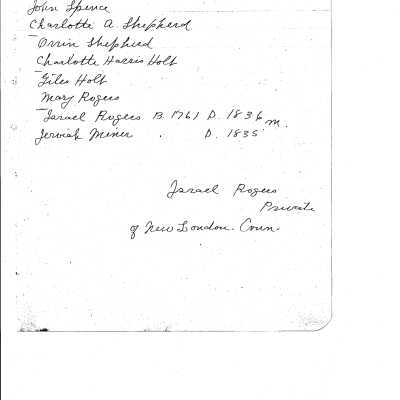 John Spence
Charlotte A Shepherd
Orrin Shepherd
Charlotte Harris Holt
Giles Holt
Mary Rogers
Israel Rogers B. 1761 D. 1836
m.
Jerviah Miner . D. 1835
Israel Rogers
Private
of New London. Conn.